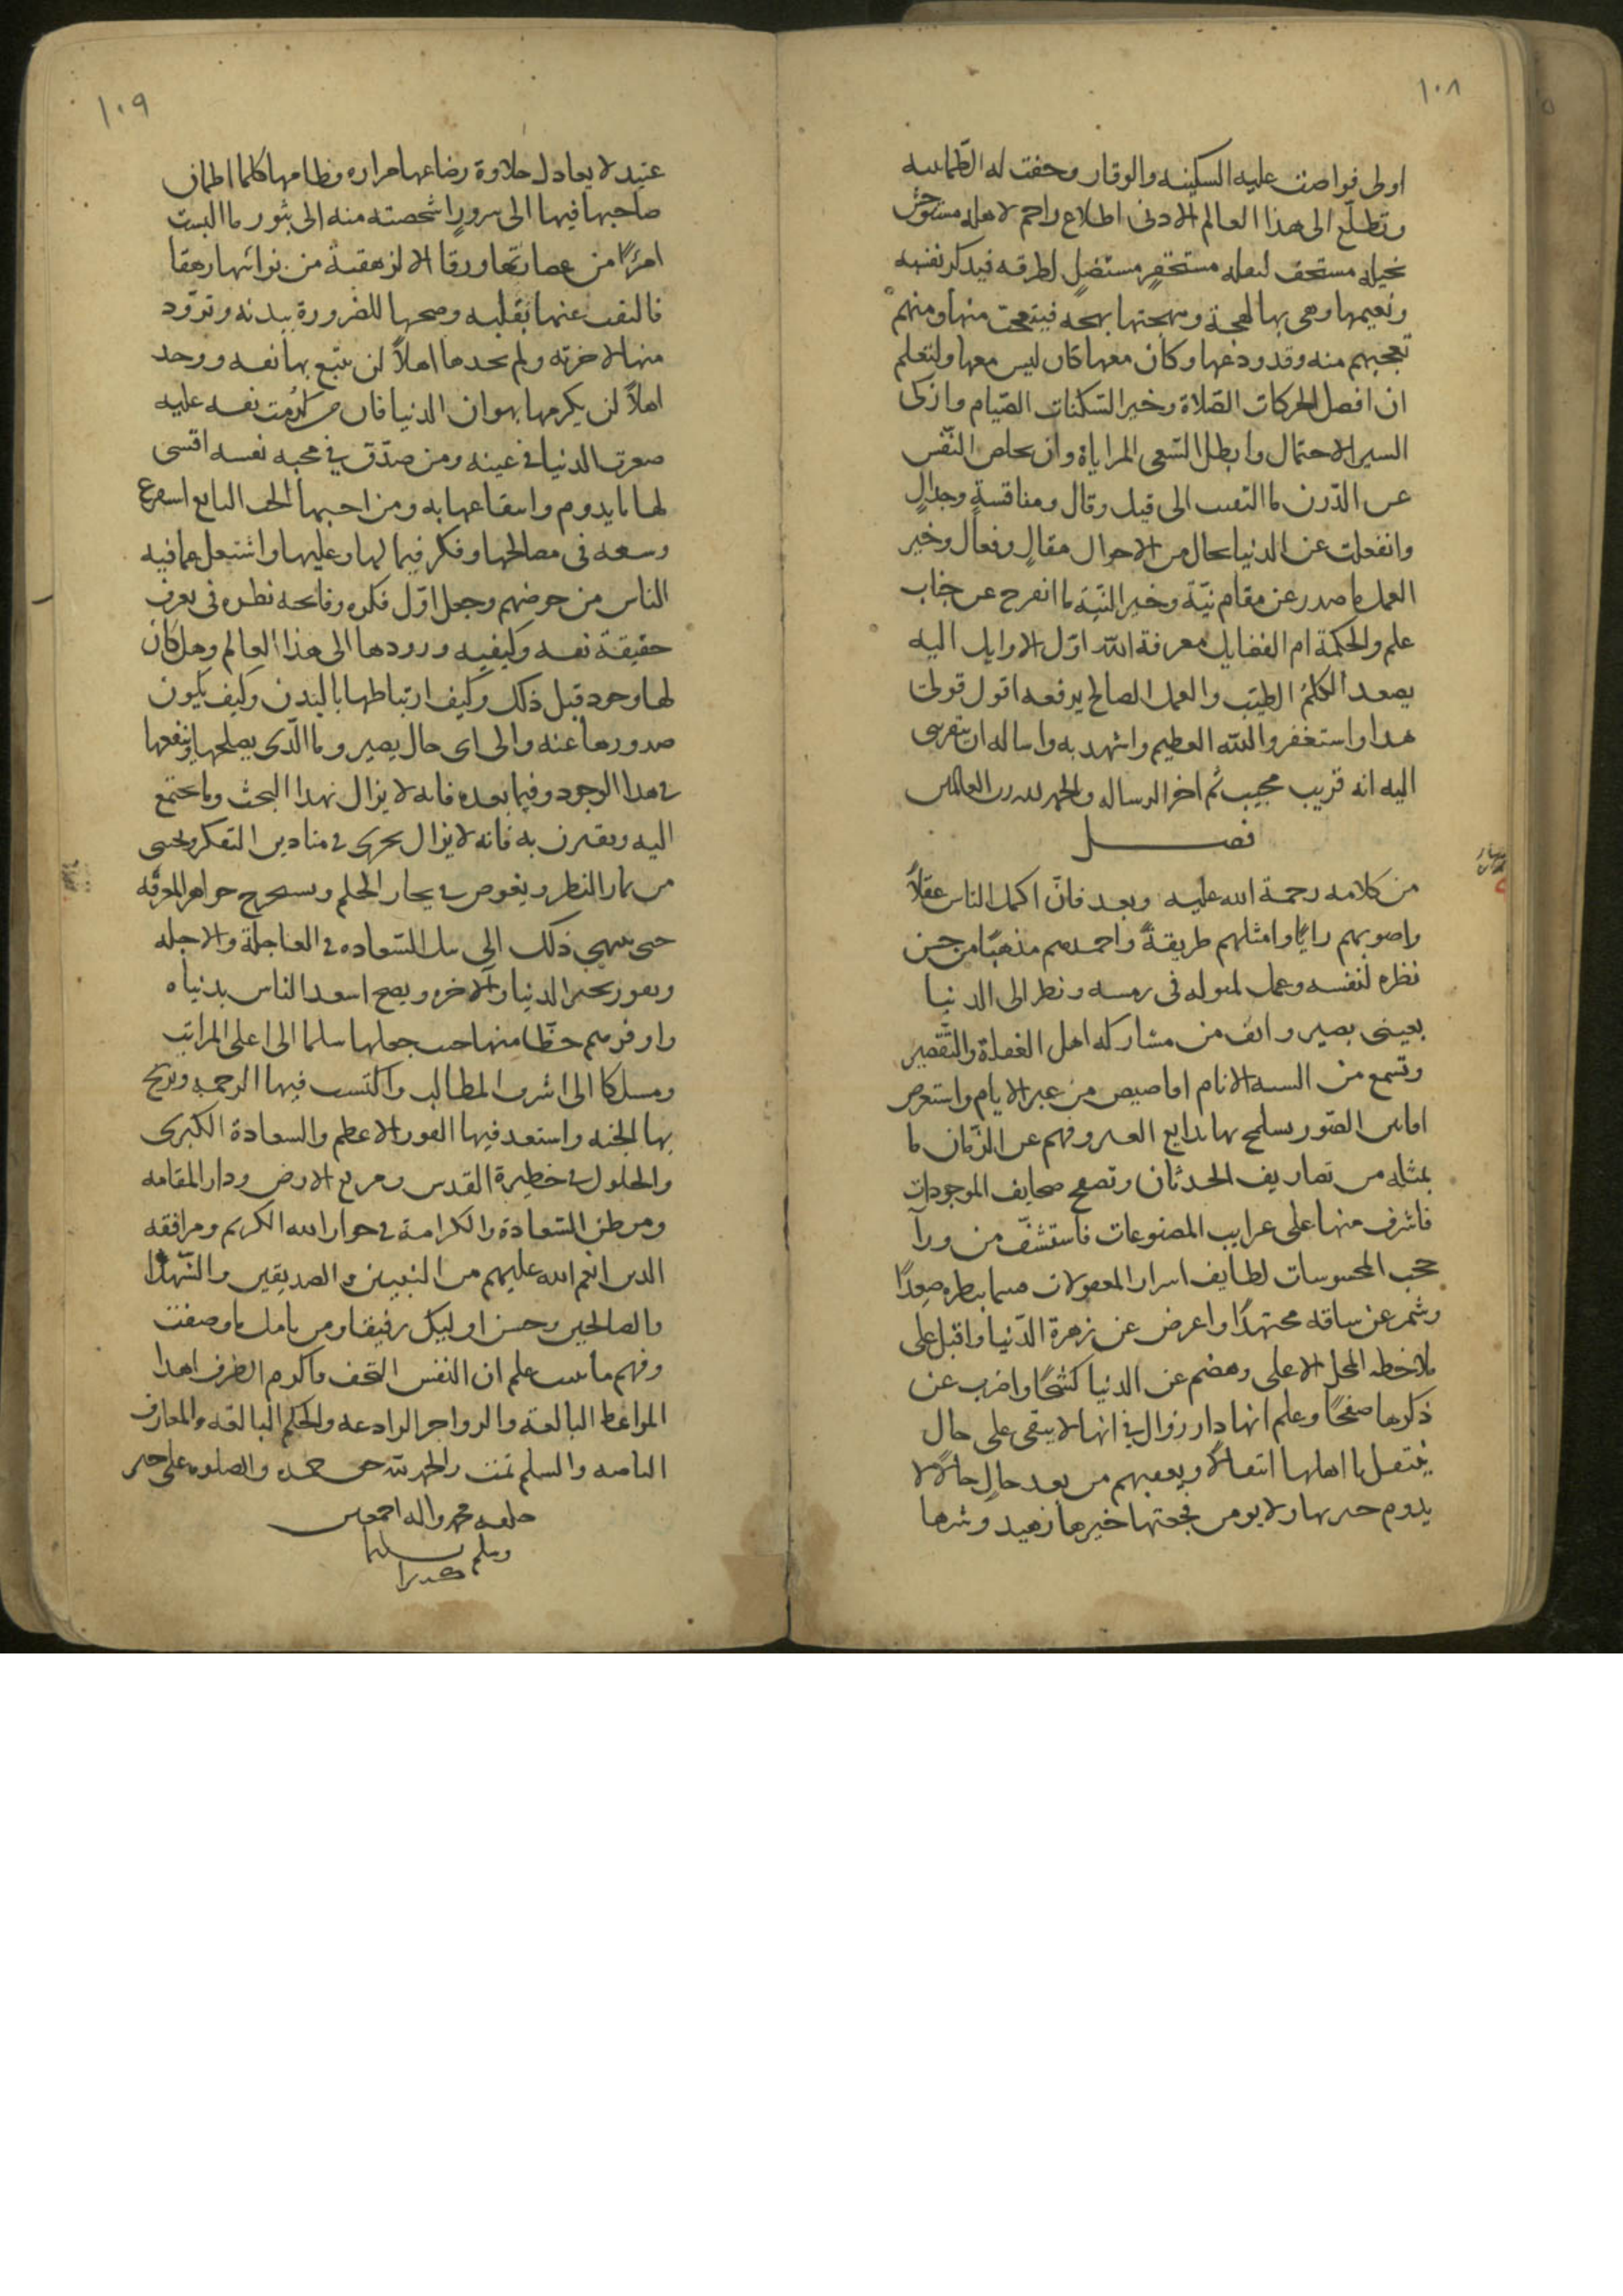 ١٠٨
اولى فواصت عليه السكينه والوقار وحفت له الطمانينه
وتطلّع الى هذا العالم الادنى اطلاع راحم لاهله مستوحش
لحيله مستخف لثقله مستخفرٍ مستضلٍ لطرقه فيذكر نفسه
وهى بها لهجة وببهجتها بهجه فيتعجب منها ومنهم
تعجبهم منه وقد ودعها وكان معها كان ليس معها ولتعلم
ان افضل الحركات الصّلاة وخير السّكنات الصّيام وازكى
السير الاحتمال وابطل السّعى المراياة وان يخلص النّفس
عن الدّرن ما التفتت الى قيل وقال ومناقسةٍ وجدالٍ
وانفعلت عن الدنيا بحال من الاحوال مقالٍ وفعال وخير
العمل ما صدر عن مقام نيّة وخير النّية ما انفرج عن جناب
علم والحكمة ام الفضايل معرفة الله اوّل الاوايل اليه
يصعد الكلمُ الطيّب والعمل الصالح يرفعه اقول قولى
هدا واستغفر والله العظيم واشهد به واساله ان يقربنى
اليه انه قريب مجيب ثم اخر الرساله والحمد لله رب العالمين
فصل
من كلامه رحمة الله عليه وبعد فانّ اكمل الناس عقلاً
واصوبهم رايًا وامثلهم طريقةً واحمدهم مذهبًا من حسن
نظره لنفسه وعمل لمٮوله فى رمسه ونظر الى الدنيا
بعينى بصير وانف من مشاركه اهل الغفلة والتّقصير
وتسمع من السنه الانام اقاصيص من عبر الايام واستعرض
الصّور بدايع العبر وفهم عن الزّمان ما
يمثله من تصاريف الحدثان وتصفح صحايف الموجودات
فاشرف منها على غرايب المصنوعات فاستشفّ من ورآ
حجب المحسوسات لطايف اسرار المعقولات صعدًا
وشمر عن ساقه مجتهدًا واعرض عن زهرة الدّنيا واقبل على
ملاحظه المحل الاعلى وهضم عن الدنيا كشحًا واضرب عن
ذكرها صفحًا وعلم انها دار زوال فى انها لا يبقى على حال
ينتقل باهلها انتقالاً ويعقبهم من بعد حالٍ حالاً لا
يدوم ولا يومن فجعتها خيرها زهيد وشرها
١٠٩
عتيد لا يعادل حلاوة رضاعها مراره فطامها كلما اطمان
صاحبها فيها الى سرورٍ اشخصته منه الى ثبور ما البست
امرءًا من ورقا الا ارهقته من نوائبها رهقا
فالتفت عنها بقلبه وصحبها للضرورة ببدنه وتزوّد
منها لاخرته ولم يجدها اهلاً لن يتبع بها نفسه ووجد
اهلاً لن يكرمها بهوان الدنيا فان من كرُمت نفسه عليه
صغرت الدنيا فى عينه ومن صدّق فى محبه نفسه اقتنى
لها ما يدوم به ومن احبها الحب البالغ استفرغ
وسعه فى مصالحها وفكر فيما لها وعليها واشتغل عما فيه
الناس من خوضهم وجعل اوّل فكره وفاتحه نظره فى تعرف
حقيقة نفسه وكيفيه ورودها الى هذا العالم وهل كان
لها وجود قبل ذلك وكيف ارتباطها بالبدن وكيف يكون
صدورها عنه والى اى حال يصير وما الّذى يصلحها وينفعها
فى هذا الوجود وفيما بعده فانه لا يزال بهذا البحث وما يجتمع
اليه ويقترن به فانه لا يزال يجرى فى ميادين التفكر ويجنى
من ثمار النظر ويغوص فى بحار الحلم ويستخرج جواهر المعرفه
حتى ينتهى ذلك الى نيل السّعاده فى العاجلة والاجله
ويفوز بخير الدنيا والاخره ويصبح اسعد الناس بدنياه
واوفرهم حظًّا منها حيث جعلها سلما الى اعلى المراتب
ومسلكا الى اشرف المطالب واكتسب فيها الرحمه وربح
بها الجنه واستعد فيها الفوز الاعظم والسعادة الكبرى
والحلول فى حظيرة القدس الارض ودار المقامه
وموطن السّعادة والكرامة فى جوار الله الكريم ومرافقه
الذين انعم الله عليهم من النبيين والصديقين والشّهدآ
والصالحين وحسن اوليك رفيقا ومن تامل ما وصفت
وفهم ما علم ان النفس التحف واكرم الطرف اهدا
المواعظ البالغه والزواجر الرادعه والحكم البالغه والمعارف
والسلم تمت والحمد لله حق حمده والصلوه على خير
خلقه محمد واله اجمعين
وسلم تسليما
كثيرا